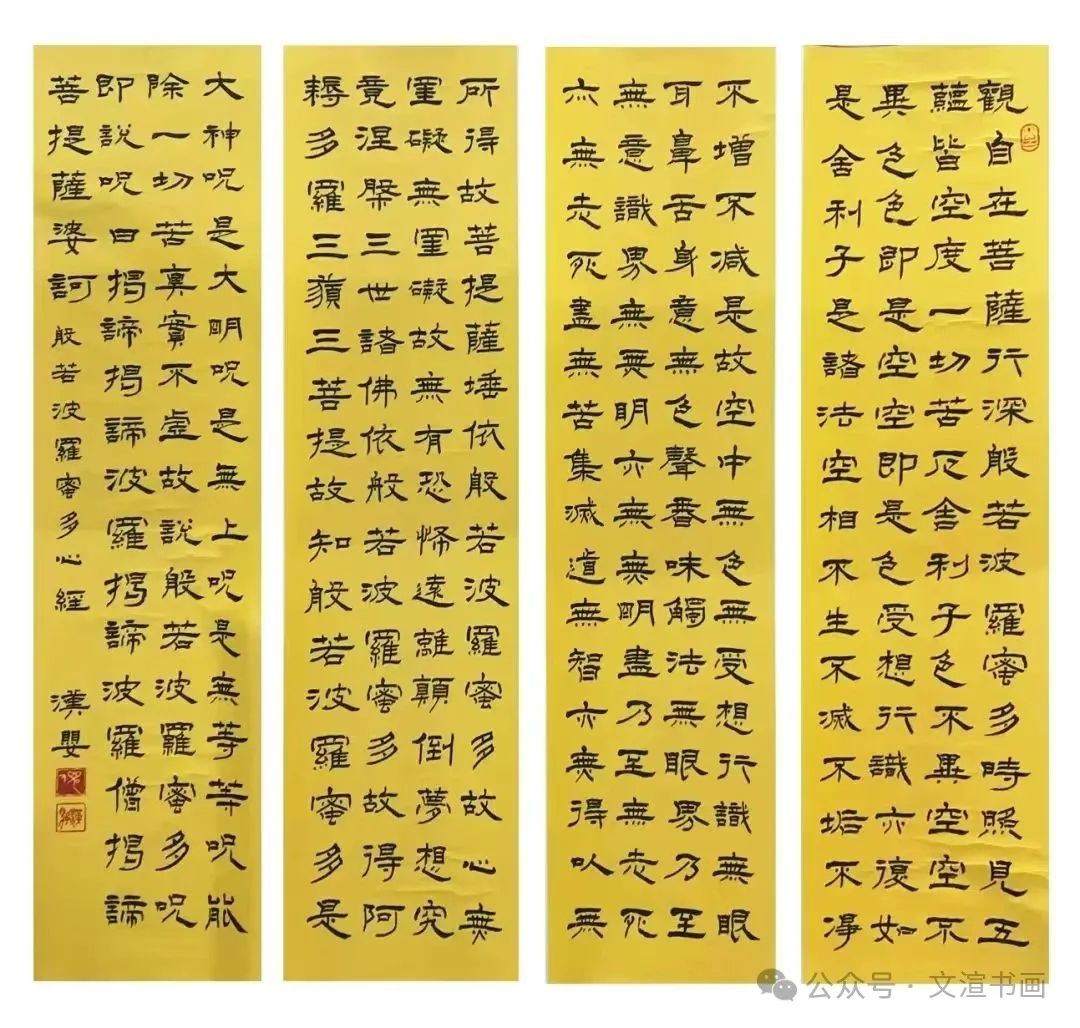 觀自在菩薩行深般若波羅蜜多時照見五
蘊皆空度一切苦厄舍利子色不異空空不
異色色即是空空即是色受想行識亦復如
是舍利子是諸法空相不生不滅不垢不淨
不增不減是故空中無色無受想行識無眼
耳鼻舌身意無色聲香味觸法無眼界乃至
無意識界無無明亦無無明盡乃至無老死
亦無老死盡無苦集滅道無智亦無得以無
所得故菩提薩埵依般若波羅蜜多故心無
罣礙無罣礙故無有恐怖遠離顛倒夢想究
竟涅槃三世諸佛依般若波羅蜜多故得阿
耨多羅三藐三菩提故知般若波羅蜜多是
大神呪是大明呪是無上呪是無等等呪能
除一切苦真實不虛故說般若波羅蜜多呪
即說呪曰揭諦揭諦波羅揭諦波羅僧揭諦
菩提薩婆訶 般若波羅蜜多心經 漢嬰
公众号·文渲书画